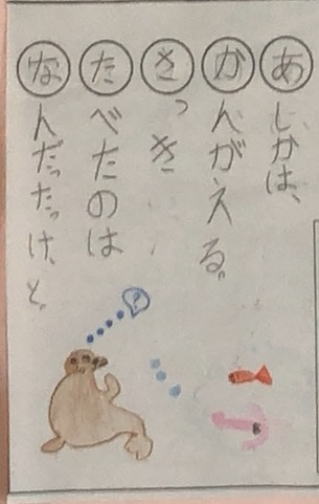 あしかは、
かんがえる。
さっき
たべたのは
なんだったっけ、と。
?